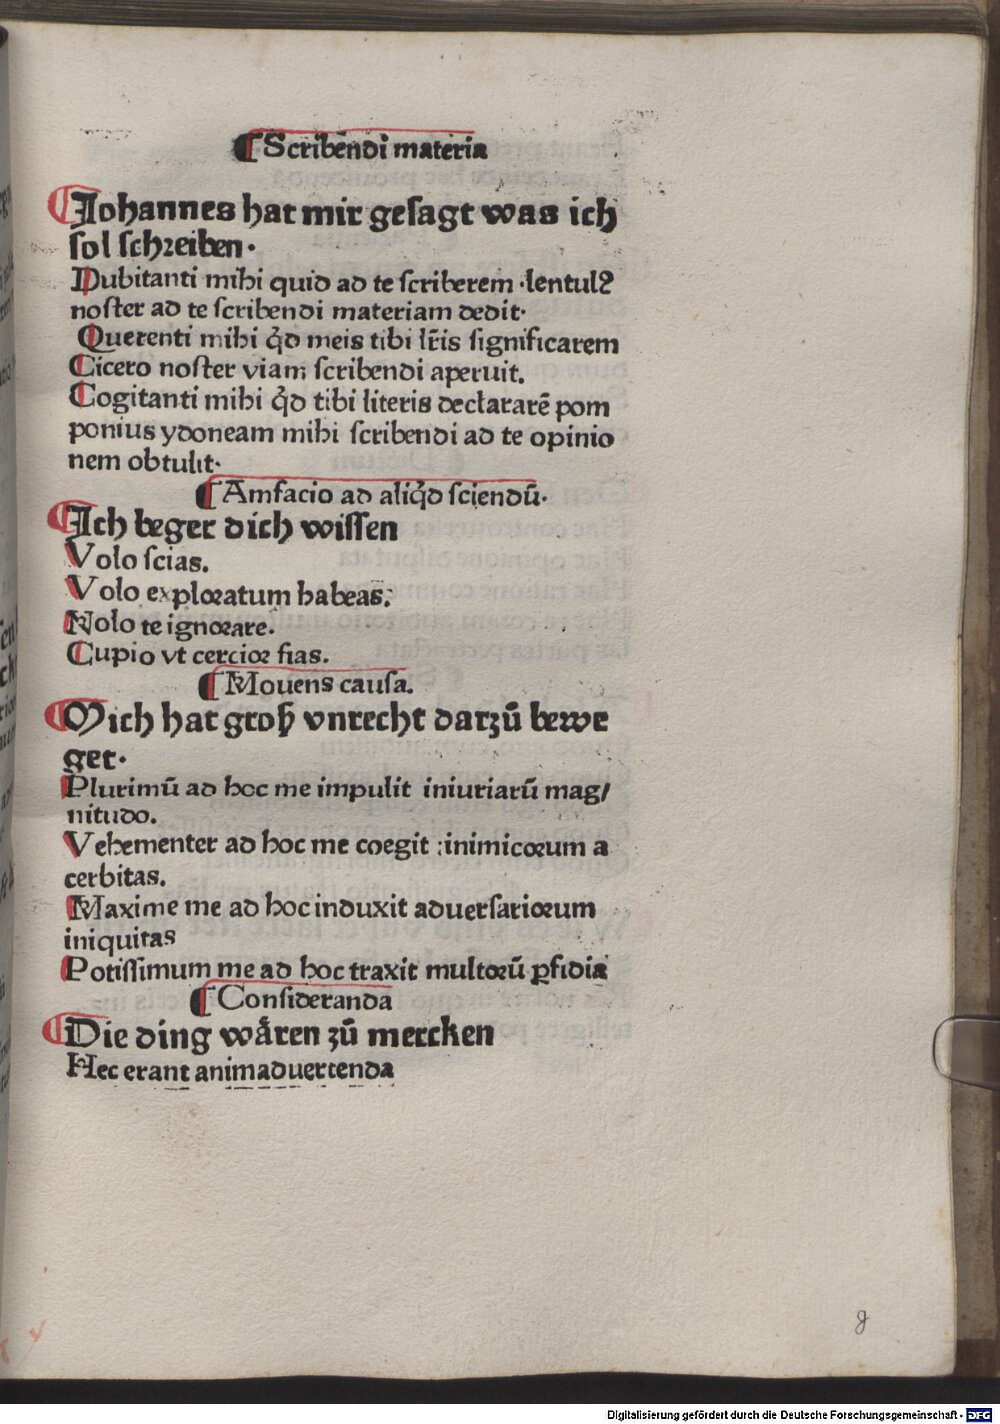 ¶ Scribendi materia
Johannes hat mir gesagt was ich
sol schreiben.
Dubitanti mihi quid ad te scriberem .lentulꝰ
noster ad te scribendi materiam dedit.
Querenti mihi qͥd meis tibi lr̃is significarem
Cicero noster viam scribendi aperuit.
Cogitanti mihi qͥd tibi literis declararē pom
ponius ydoneam mihi scribendi ad te opinio
nem obtulit.
¶ Amfacio ad aliqͥd sciendū.
Ich beger dich wissen
Volo scias.
Volo exploratum habeas.
Nolo te ignorare.
Cupio vt cercior fias.
¶ Mouens causa.
Mich hat groß vnrecht darzū bewe
get.
Plurimū ad hoc me impulit iniuriarū mag/
nitudo.
Vehementer ad hoc me coegit :inimicorum a
cerbitas.
Maxime me ad hoc induxit aduersariorum
iniquitas
Potissimum me ad hoc traxit multorū ꝑfidia
¶ Consideranda
Die ding wåren zū mercken
Hec erant animaduertenda
g
Digitalisierung gefördert durch die Deutsche Forschungsgemeinschaft - DFG